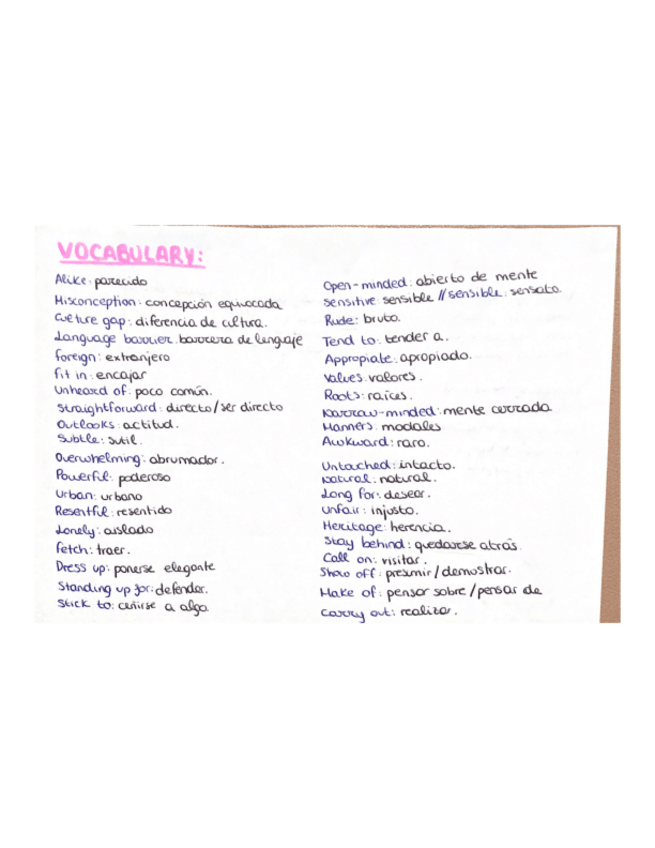 VOCABULARY:
Alike: parecido
Misconception: concepción equivocada
Culture gap: diferencia de cultura.
Language barrier: barrera de lenguaje
foreign: extranjero
fit in: encajar
Unheard of: poco común.
Straightforward: directo/ser directo
Outlooks: actitud.
Subtle: sutil.
Overwhelming: abrumador.
Powerful: poderoso
Urban: urbano
Resentful: resentido
Lonely: aislado
fetch: traer.
Dress up: ponerse elegante
Standing up for: defender.
Stick to: ceñirse a algo
Open-minded: abierto de mente
sensitive: sensible // sensible: sensato.
Rude: bruto.
Tend to: tender a.
Appropiate: apropiado.
Values: valores.
Roots: raíces.
Narrow-minded: mente cerrada
Manners: modales
Awkward: raro.
Untouched: intacto.
Natural: natural.
Long for: desear.
Unfair: injusto.
Heritage: herencia.
Stay behind: quedarse atrás.
Call on: visitar.
Show off: presmir/demostrar.
Make of: pensar sobre/pensar de
Carry out: realizar.